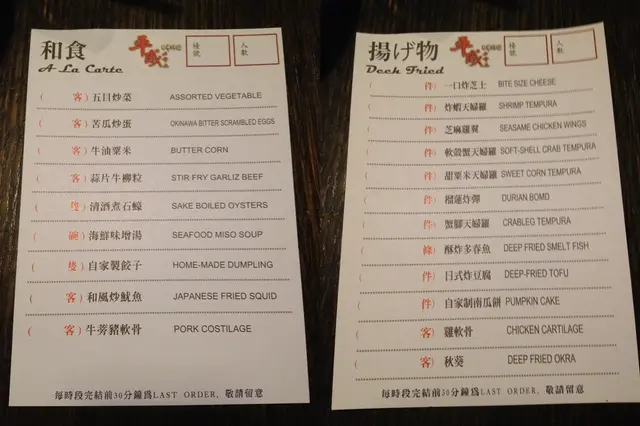 和食
A La Carte
平成
檯號
人數
(客) 五目炒菜 ASSORTED VEGETABLE
(客) 苦瓜炒蛋 OKINAWA BITTER SCRAMBLED EGGS
(客) 牛油粟米 BUTTER CORN
(客) 蒜片牛柳粒 STIR FRY GARLIZ BEEF
(隻) 清酒煮石蠔 SAKE BOILED OYSTERS
(碗) 海鮮味增湯 SEAFOOD MISO SOUP
(隻) 自家製餃子 HOME-MADE DUMPLING
(客) 和風炒魷魚 JAPANESE FRIED SQUID
(客) 牛蒡豬軟骨 PORK COSTILAGE
每時段完結前30分鐘爲LAST ORDER, 敬請留意
揚げ物
Deek Fried
平成
檯號
人數
(件) 一口炸芝士 BITE SIZE CHEESE
(件) 炸蝦天婦羅 SHRIMP TEMPURA
(件) 芝麻雞翼 SEASAME CHICKEN WINGS
(件) 軟殼蟹天婦羅 SOFT-SHELL CRAB TEMPURA
(件) 甜粟米天婦羅 SWEET CORN TEMPURA
(件) 榴蓮炸彈 DURIAN BOMD
(件) 蟹腳天婦羅 CRABLEG TEMPURA
(條) 酥炸多春魚 DEEP FRIED SMELT FISH
(件) 日式炸豆腐 DEEP-FRIED TOFU
(件) 自家制南瓜餅 PUMPKIN CAKE
(客) 雞軟骨 CHICKEN CARTILAGE
(客) 秋葵 DEEP FRIED OKRA
每時段完結前30分鐘爲LAST ORDER, 敬請留意